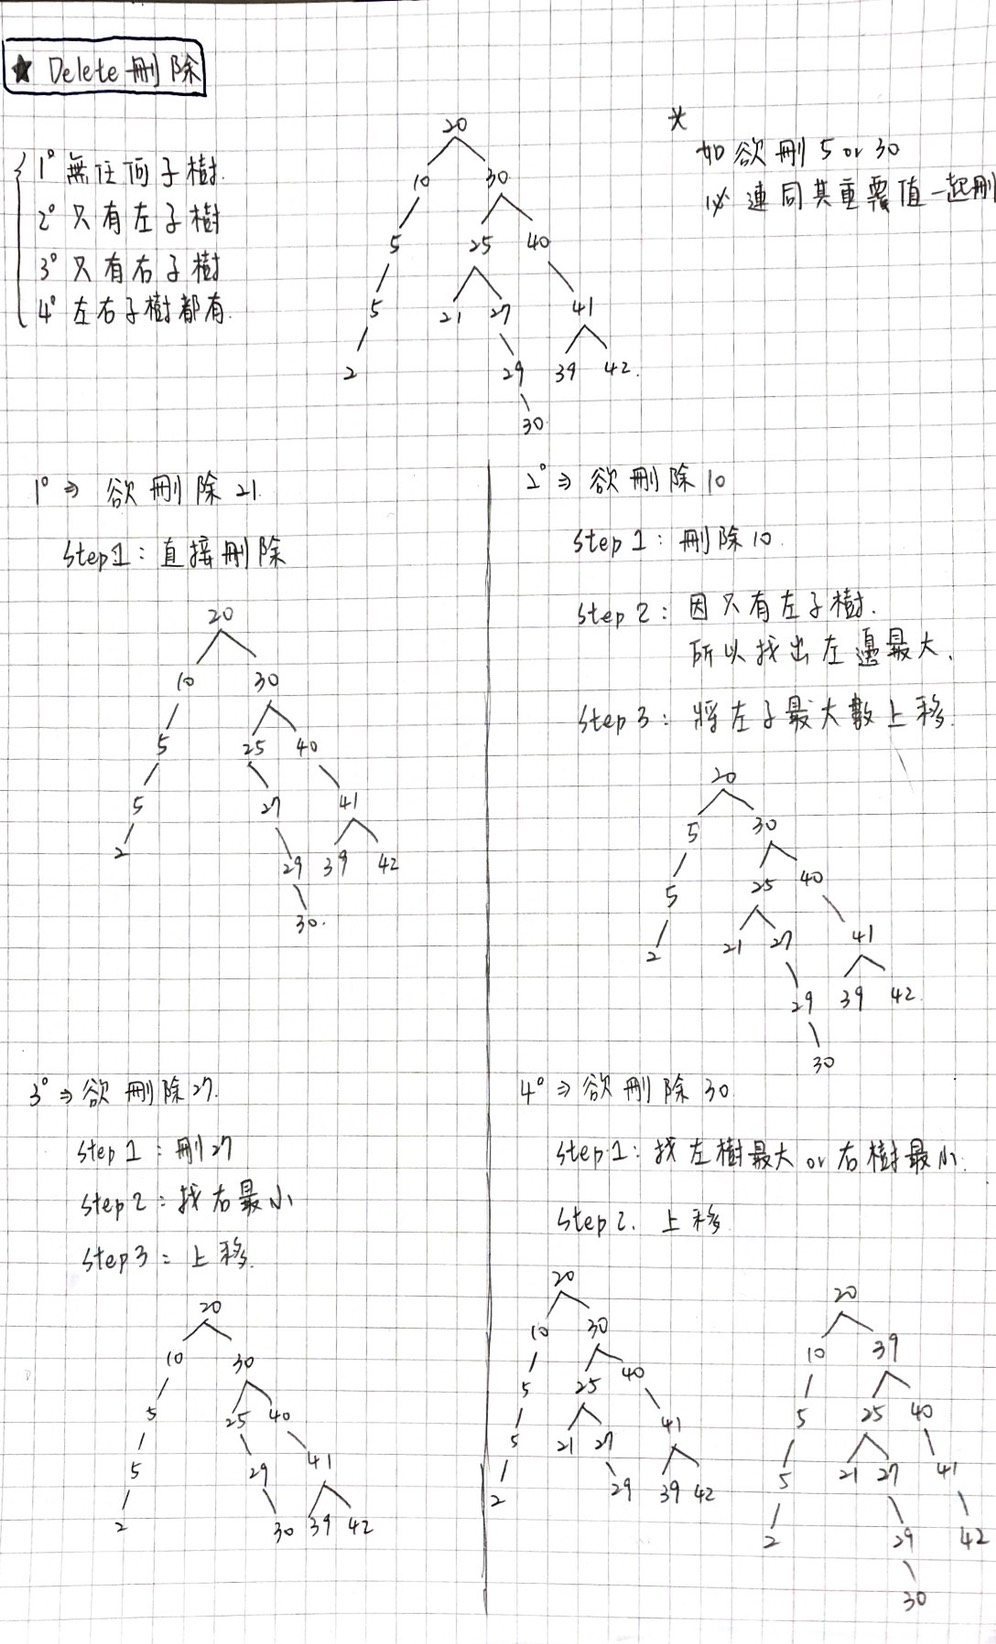 ★ Delete 刪除
1° 無任何子樹.
2° 只有左子樹
3° 只有右子樹
4° 左右子樹都有.
20
10 30
5 25 40
5 21 27 41
2 29 39 42.
30
*
如欲刪 5 or 30
必連同其重覆值一起刪
1° ⇒ 欲刪除 21.
Step 1: 直接刪除
20
10 30
5 25 40
5 27 41
2 29 39 42
30.
2° ⇒ 欲刪除 10
Step 1: 刪除 10.
Step 2: 因只有左子樹.
所以找出左邊最大.
Step 3: 將左子最大數上移.
20
5 30
5 25 40
2 21 27 41
29 39 42.
30
3° ⇒ 欲刪除 27.
Step 1: 刪 27
Step 2: 找右最小
Step 3: 上移.
20
10 30
5 25 40
5 29 41
2 30 39 42
4° ⇒ 欲刪除 30
Step 1: 找左樹最大 or 右樹最小.
Step 2. 上移
20
10 30
5 25 40
5 21 27 41
2 29 39 42
20
10 39
5 25 40
5 21 27 41
2 29 42
30